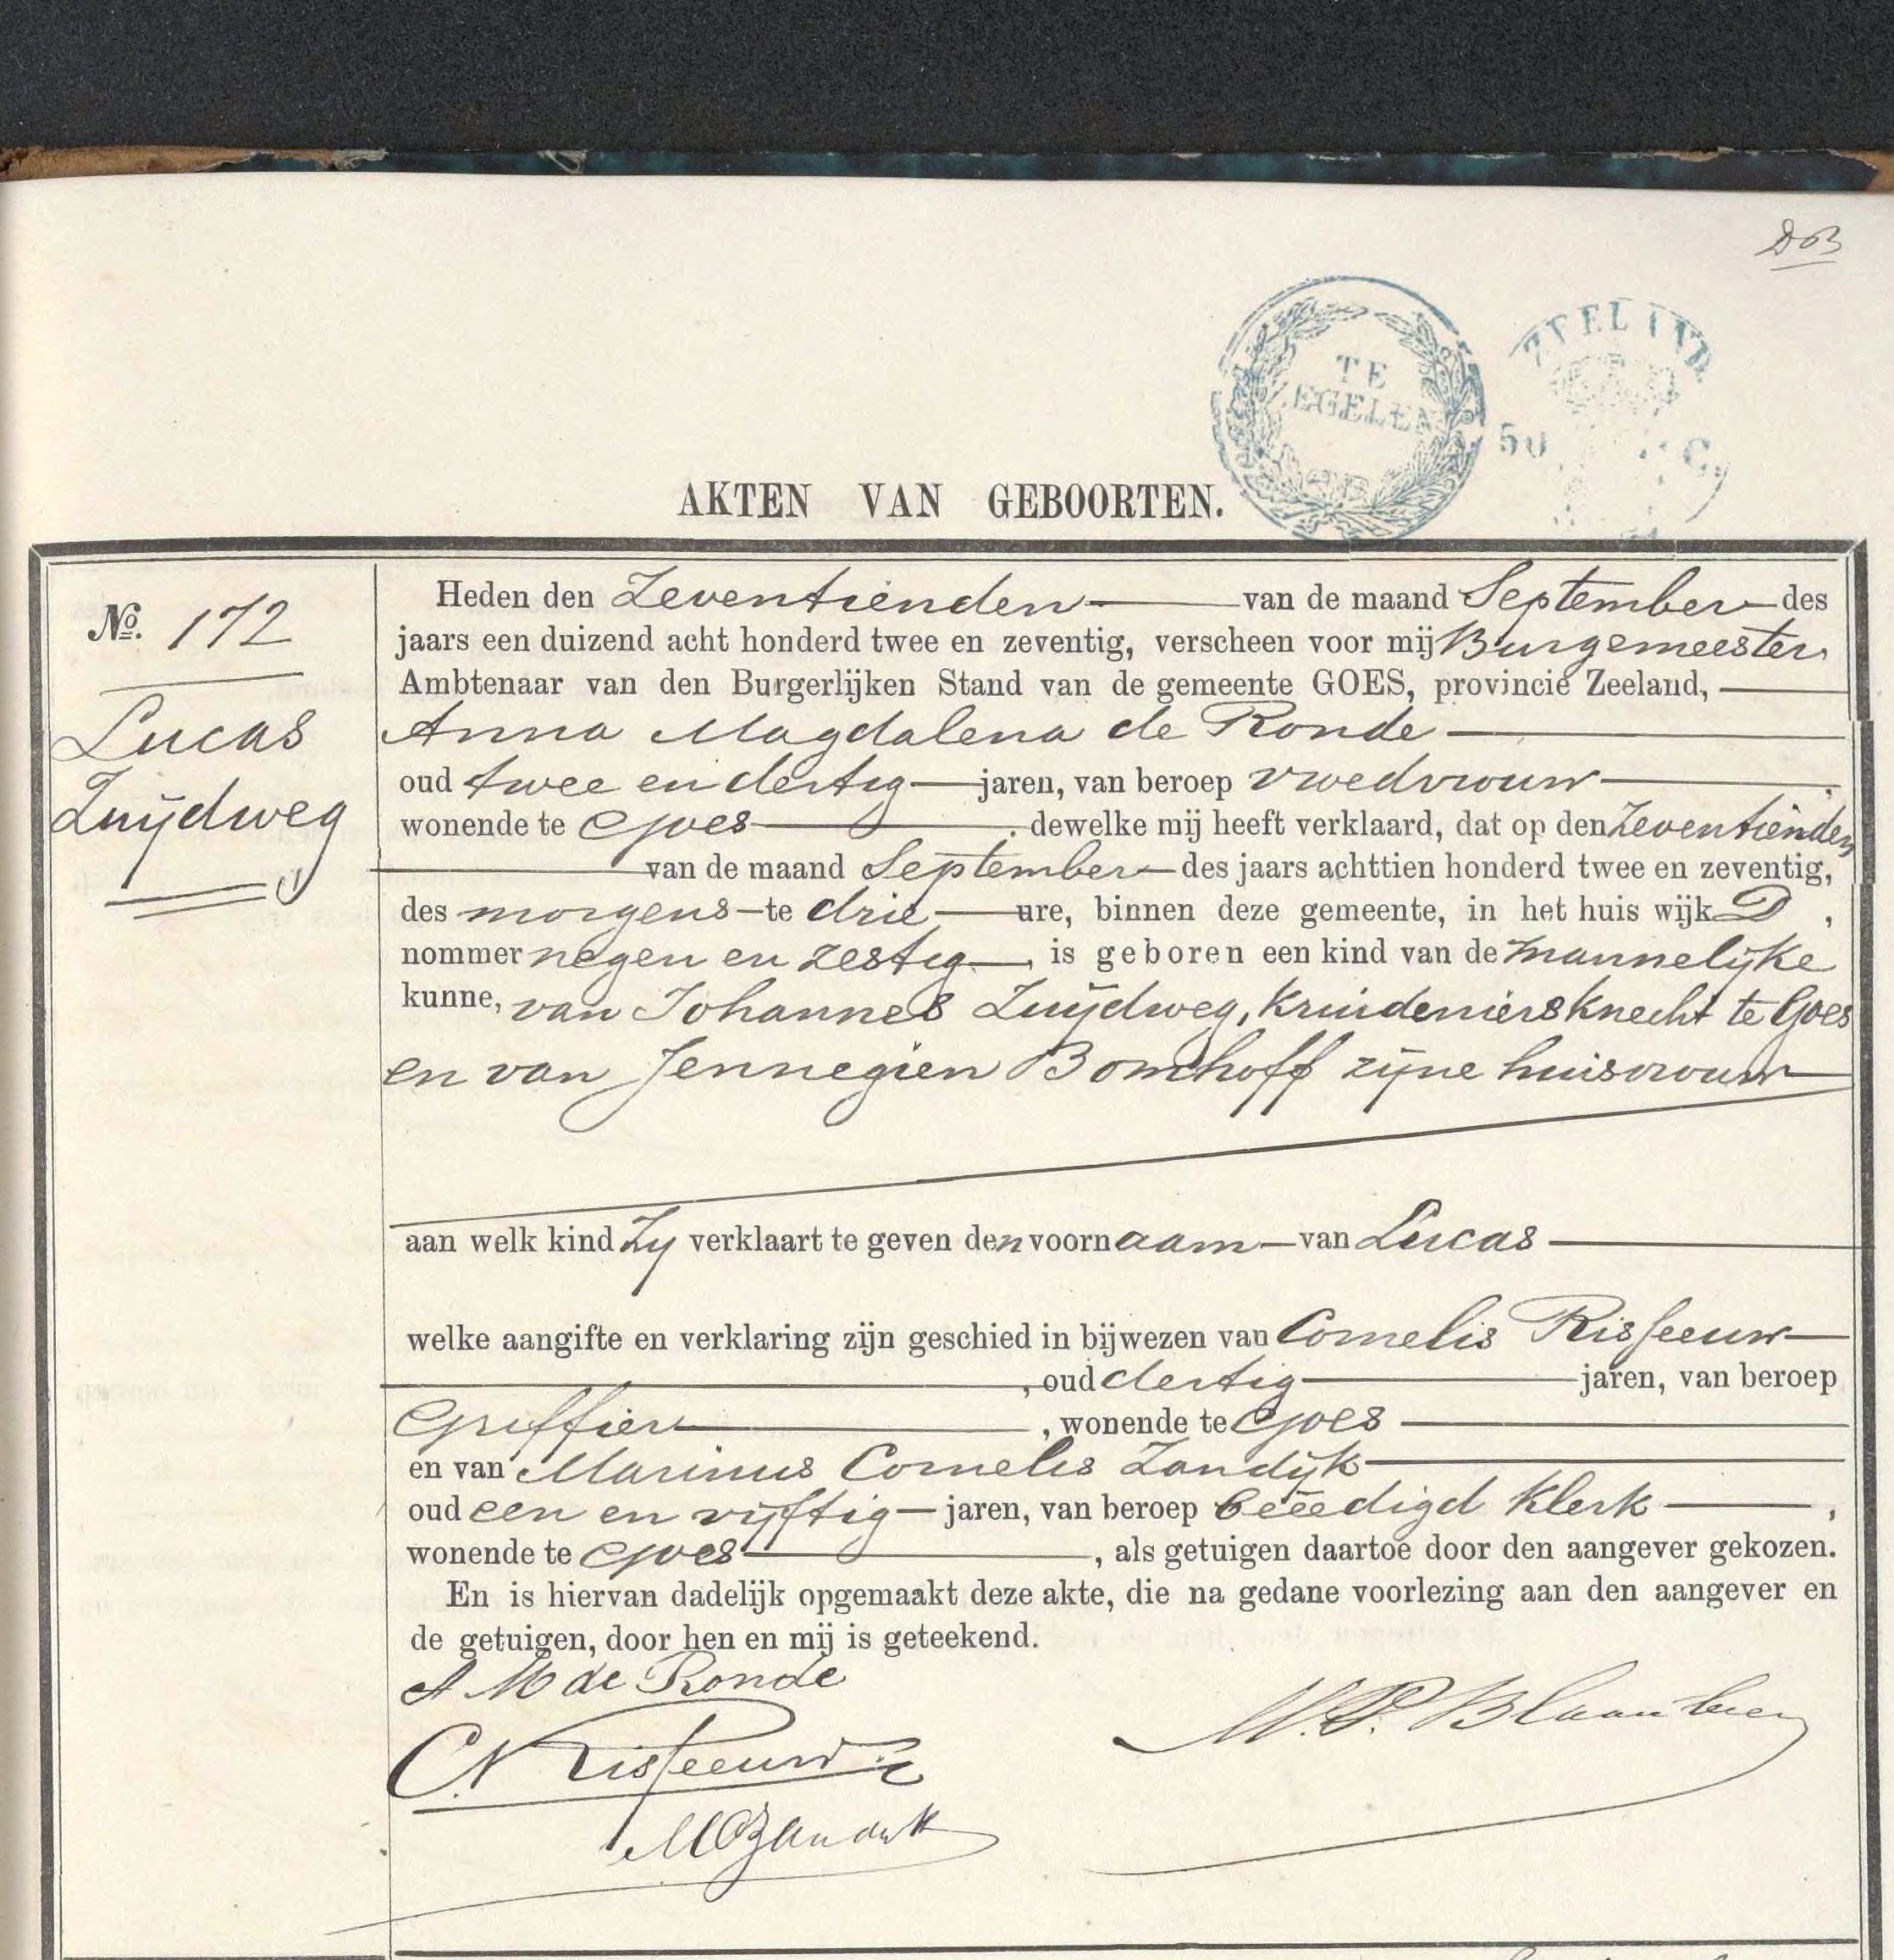 TE
ZEGELEN
ZEELAND.
50 C.
AKTEN VAN GEBOORTEN.
No. 172
Lucas
Zuijdweg
Heden den Zeventienden van de maand September des
jaars een duizend acht honderd twee en zeventig, verscheen voor mij Burgemeester
Ambtenaar van den Burgerlijken Stand van de gemeente GOES, provincie Zeeland,
Anna Magdalena de Ronde
oud twee en dertig jaren, van beroep vroedvrouw,
wonende te Goes, dewelke mij heeft verklaard, dat op den Zeventienden
van de maand September des jaars achttien honderd twee en zeventig,
des morgens te drie ure, binnen deze gemeente, in het huis wijk D,
nommer negen en zestig, is geboren een kind van de mannelijke
kunne, van Johannes Zuijdweg, Kruideniersknecht te Goes
en van Jennegien Bomhoff zijne huisvrouw
aan welk kind Zy verklaart te geven den voornaam van Lucas
welke aangifte en verklaring zijn geschied in bijwezen van Cornelis Risseeuw
, oud dertig jaren, van beroep
Griffier, wonende te Goes
en van Marinus Cornelis Zandijk
oud een en vijftig jaren, van beroep beëedigd Klerk,
wonende te Goes, als getuigen daartoe door den aangever gekozen.
En is hiervan dadelijk opgemaakt deze akte, die na gedane voorlezing aan den aangever en
de getuigen, door hen en mij is geteekend.
A M de Ronde
M. P. Blaaubeen
C. Risseeuw
MCZandijk